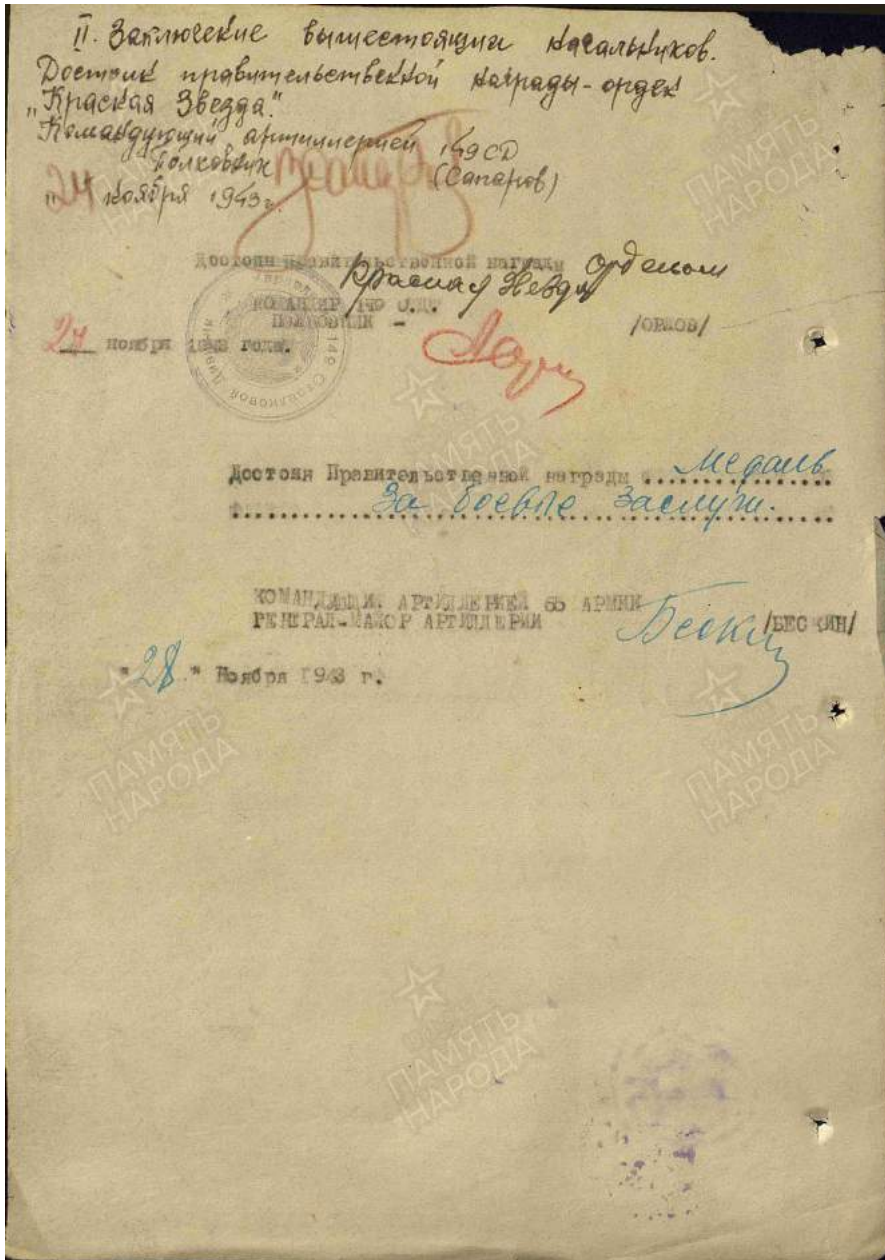 II. Заключение вышестоящих начальников.
Достоин правительственной награды-орден
„Красная Звезда."
Командующий артиллерией 149 СД
Полковник (Сапаров)
24 ноября 1943 г.
Достоин Правительственной награды орденом
Красная Звезда
КОМАНДИР 149 С.Д.
ПОЛКОВНИК - /ОРЛОВ/
24 ноября 1943 года.
Достоин Правительственной награды Медаль
За боевые заслуги.
КОМАНДУЮЩИЙ АРТИЛЛЕРИЕЙ 65 АРМИИ
ГЕНЕРАЛ-МАЙОР АРТИЛЛЕРИИ /БЕСКИН/
"28" Ноября 1943 г.
ПАМЯТЬ
НАРОДА